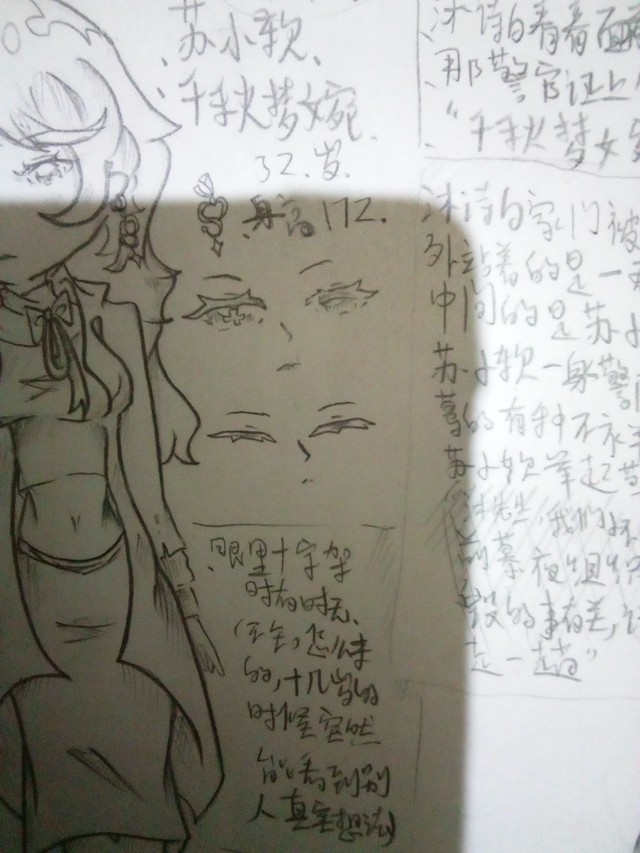 苏小软、
千秋梦婉
32.岁.
身高172.
眼里十字架
时有时无、
怎么来
的，十几岁的
时候突然
能看到别
人真实想法
沐诗白看着面
那警官证上
“千秋梦
沐诗白家门被
外站着的是一
中间的是苏小
苏小软一身警
的有种不
苏小软举起
先生，我们怀
夜组织
毁的事有关，
走一趟”